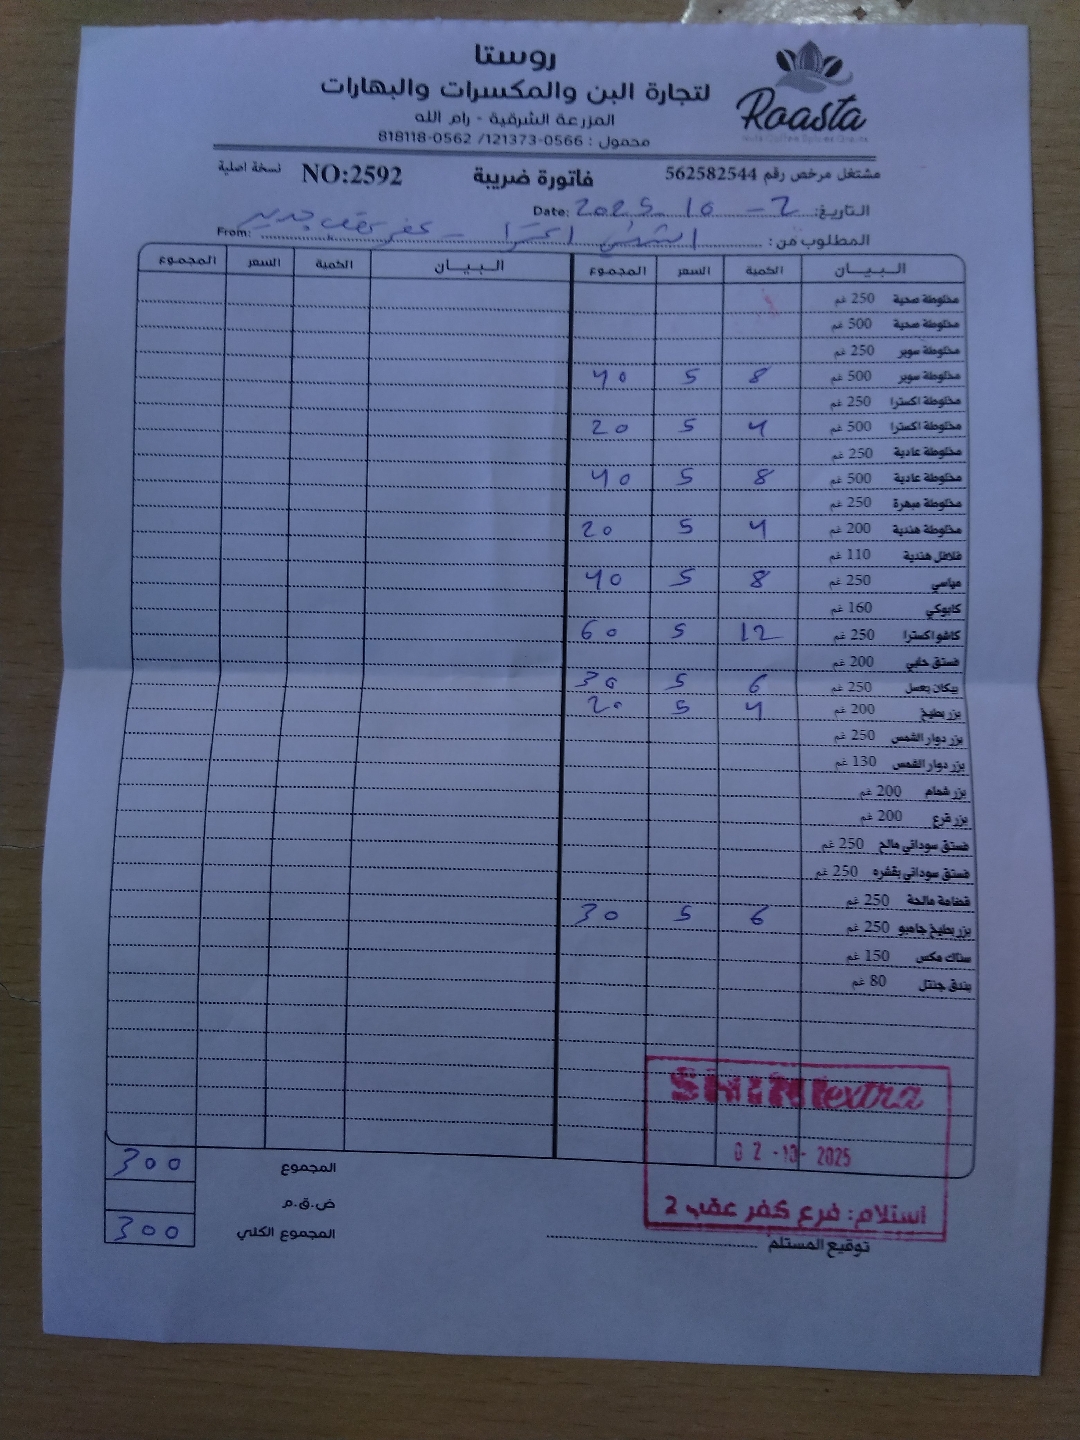 روستا
لتجارة البن والمكسرات والبهارات
المزرعة الشرقية - رام الله
محمول : 0566-121373/ 0562-818118
Roasta
مشتغل مرخص رقم 562582544 فاتورة ضريبة NO:2592 نسخة اصلية
التاريخ: 2 - 10 2025 Date:
المطلوب من: الشني اكسترا - كفر عقب جديد From:
البـيـــان الكمية السعر المجموع البـيـــان الكمية السعر المجموع
مخلوطة صحية 250 غم
مخلوطة صحية 500 غم
مخلوطة سوبر 250 غم
مخلوطة سوبر 500 غم 8 5 40
مخلوطة اكسترا 250 غم
مخلوطة اكسترا 500 غم 4 5 20
مخلوطة عادية 250 غم
مخلوطة عادية 500 غم 8 5 40
مخلوطة مبهرة 250 غم
مخلوطة هندية 200 غم 4 5 20
فلافل هندية 110 غم
مياسي 250 غم 8 5 40
كابوكي 160 غم
كاشو اكسترا 250 غم 12 5 60
فستق حلبي 200 غم
بيكان بعسل 250 غم 6 5 30
بزر بطيخ 200 غم 4 5 20
بزر دوار الشمس 250 غم
بزر دوار الشمس 130 غم
بزر شمام 200 غم
بزر قرع 200 غم
فستق سوداني مالح 250 غم
فستق سوداني بقشره 250 غم
قضامة مالحة 250 غم
بزر بطيخ جامبو 250 غم 6 5 30
سناك مكس 150 غم
بندق جنتل 80 غم
SHINI extra
02-10-2025
استلام: فرع كفر عقب 2
المجموع 300
ض.ق.م
المجموع الكلي 300
توقيع المستلم